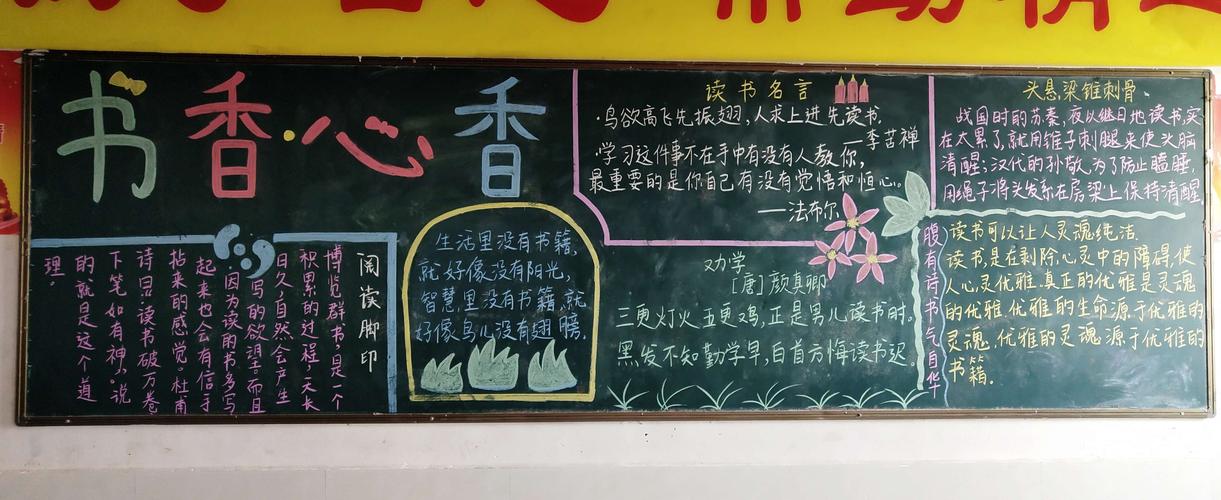 书香·心香
阅读脚印
博览群书，是一个
积累的过程，天长
日久，自然会产生
写的欲望。而且
因为读的书多写
起来也会有信手
拈来的感觉。杜甫
诗曰：读书破万卷
下笔如有神。说
的就是这个道
理。
生活里没有书籍，
就好像没有阳光，
智慧里没有书籍，就
好像鸟儿没有翅膀，
读书名言
·鸟欲高飞先振翅，人求上进先读书。
——李苦禅
·学习这件事不在乎有没有人教你，
最重要的是你自己有没有觉悟和恒心。
——法布尔
劝学
[唐]颜真卿
三更灯火五更鸡，正是男儿读书时。
黑发不知勤学早，白首方悔读书迟。
头悬梁锥刺骨、
战国时的苏秦，夜以继日地读书，实
在太累了，就用锥子刺腿来使头脑
清醒；汉代的孙敬，为了防止瞌睡，
用绳子将头发系在房梁上保持清醒
腹有诗书气自华
读书可以让人灵魂纯洁.
读书，是在剥除心灵中的障碍，使
人心灵优雅.真正的优雅是灵魂
的优雅.优雅的生命源于优雅的
灵魂，优雅的灵魂源于优雅的
书籍。